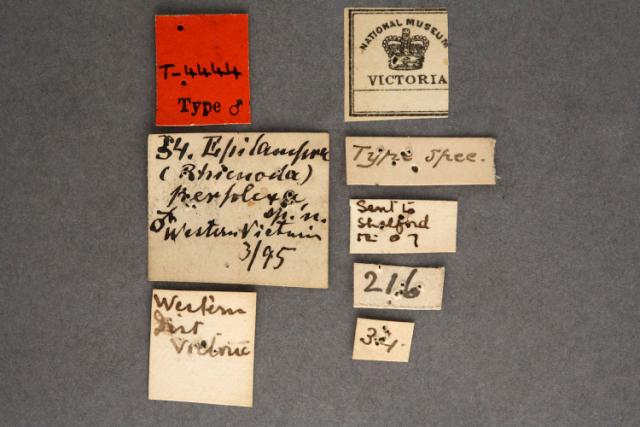 T-4444
Type ♂
NATIONAL MUSEUM
VICTORIA
34. Epilampra
(Rhicnoda)
perplexa,
sp. n.
♂ Western Victoria
3/95
Type spec.
Sent to
Shelford
07
216
34.
Western
Dist
Victoria